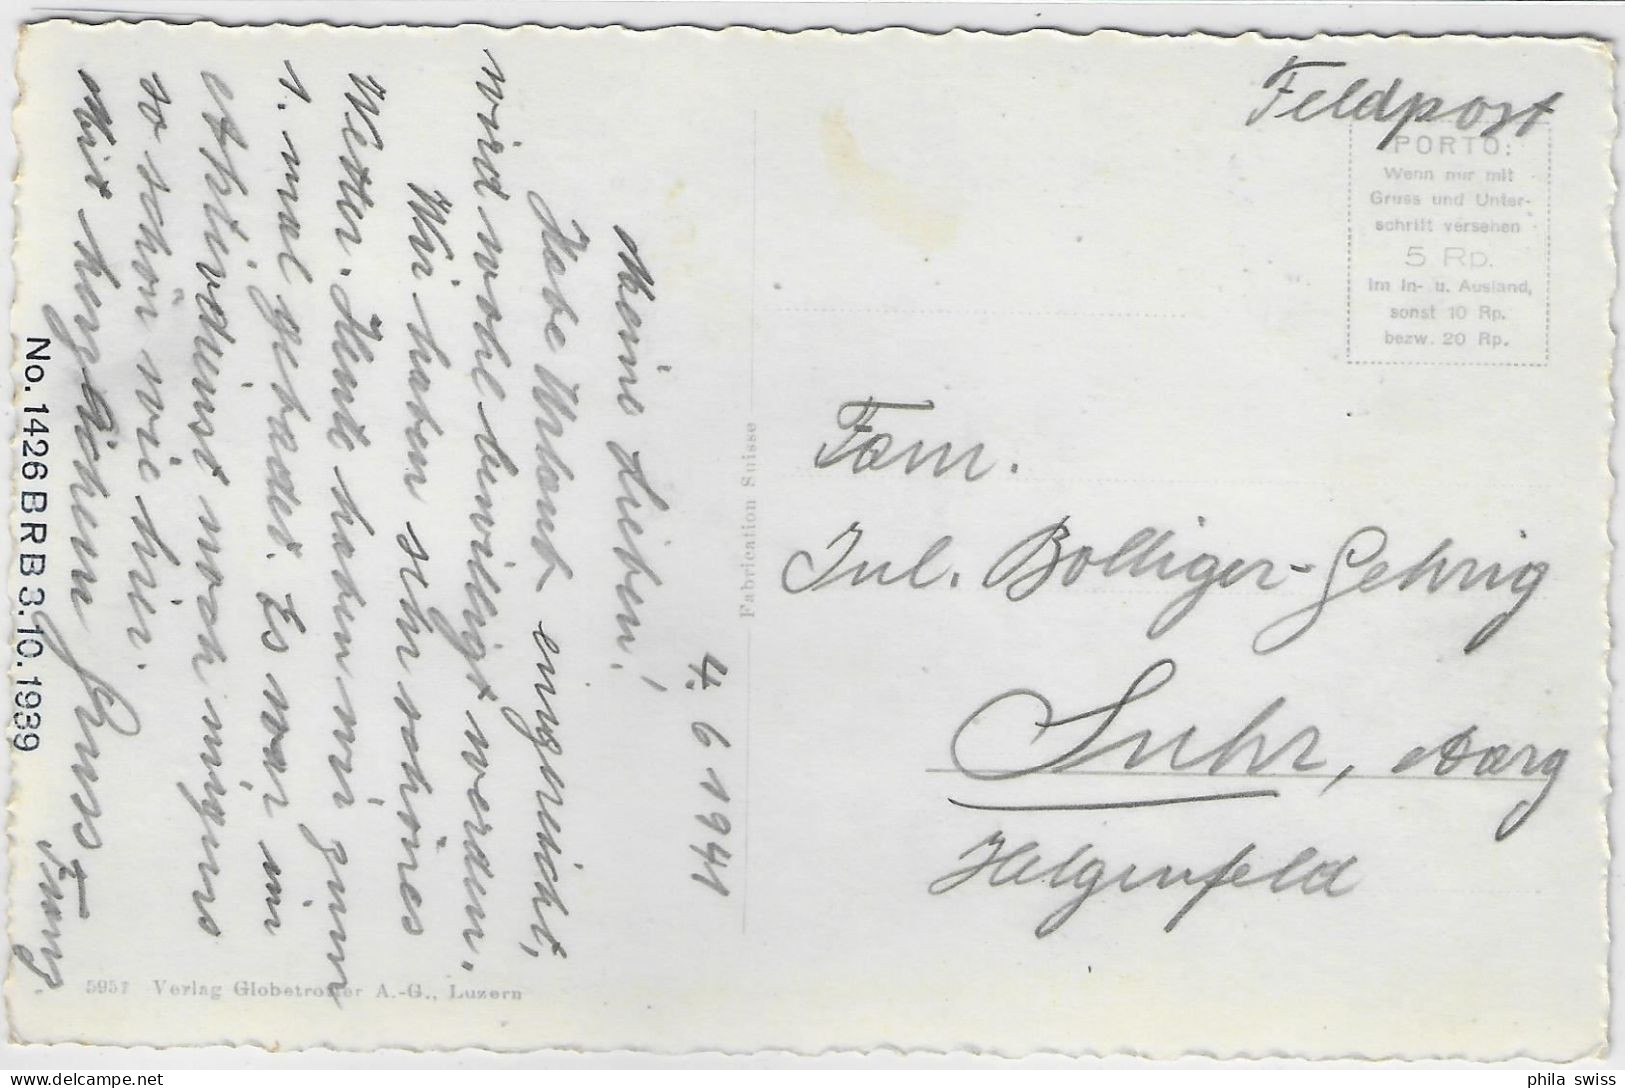 4. 6 1941
Meine Lieben!
Habe Urlaub eingereicht,
wird wohl bewilligt werden.
Wir haben sehr schönes
Wetter. Heute haben wir zum
1. mal gebadet. Es war im
Aktivdienst noch nirgens
so schön wie hier.
Mit herzlichem Gruss
Franz
No. 1426 B R B 3.10.1939
5957 Verlag Globetrotter A.-G., Luzern
Fabrication Suisse
Feldpost
PORTO:
Wenn nur mit
Gruss und Unter-
schrift versehen
5 Rp.
im In- u. Ausland,
sonst 10 Rp.
bezw. 20 Rp.
Fam.
Jul. Bolliger-Gehrig
Suhr, Aarg
Helgenfeld
phila swiss
delcampe.net